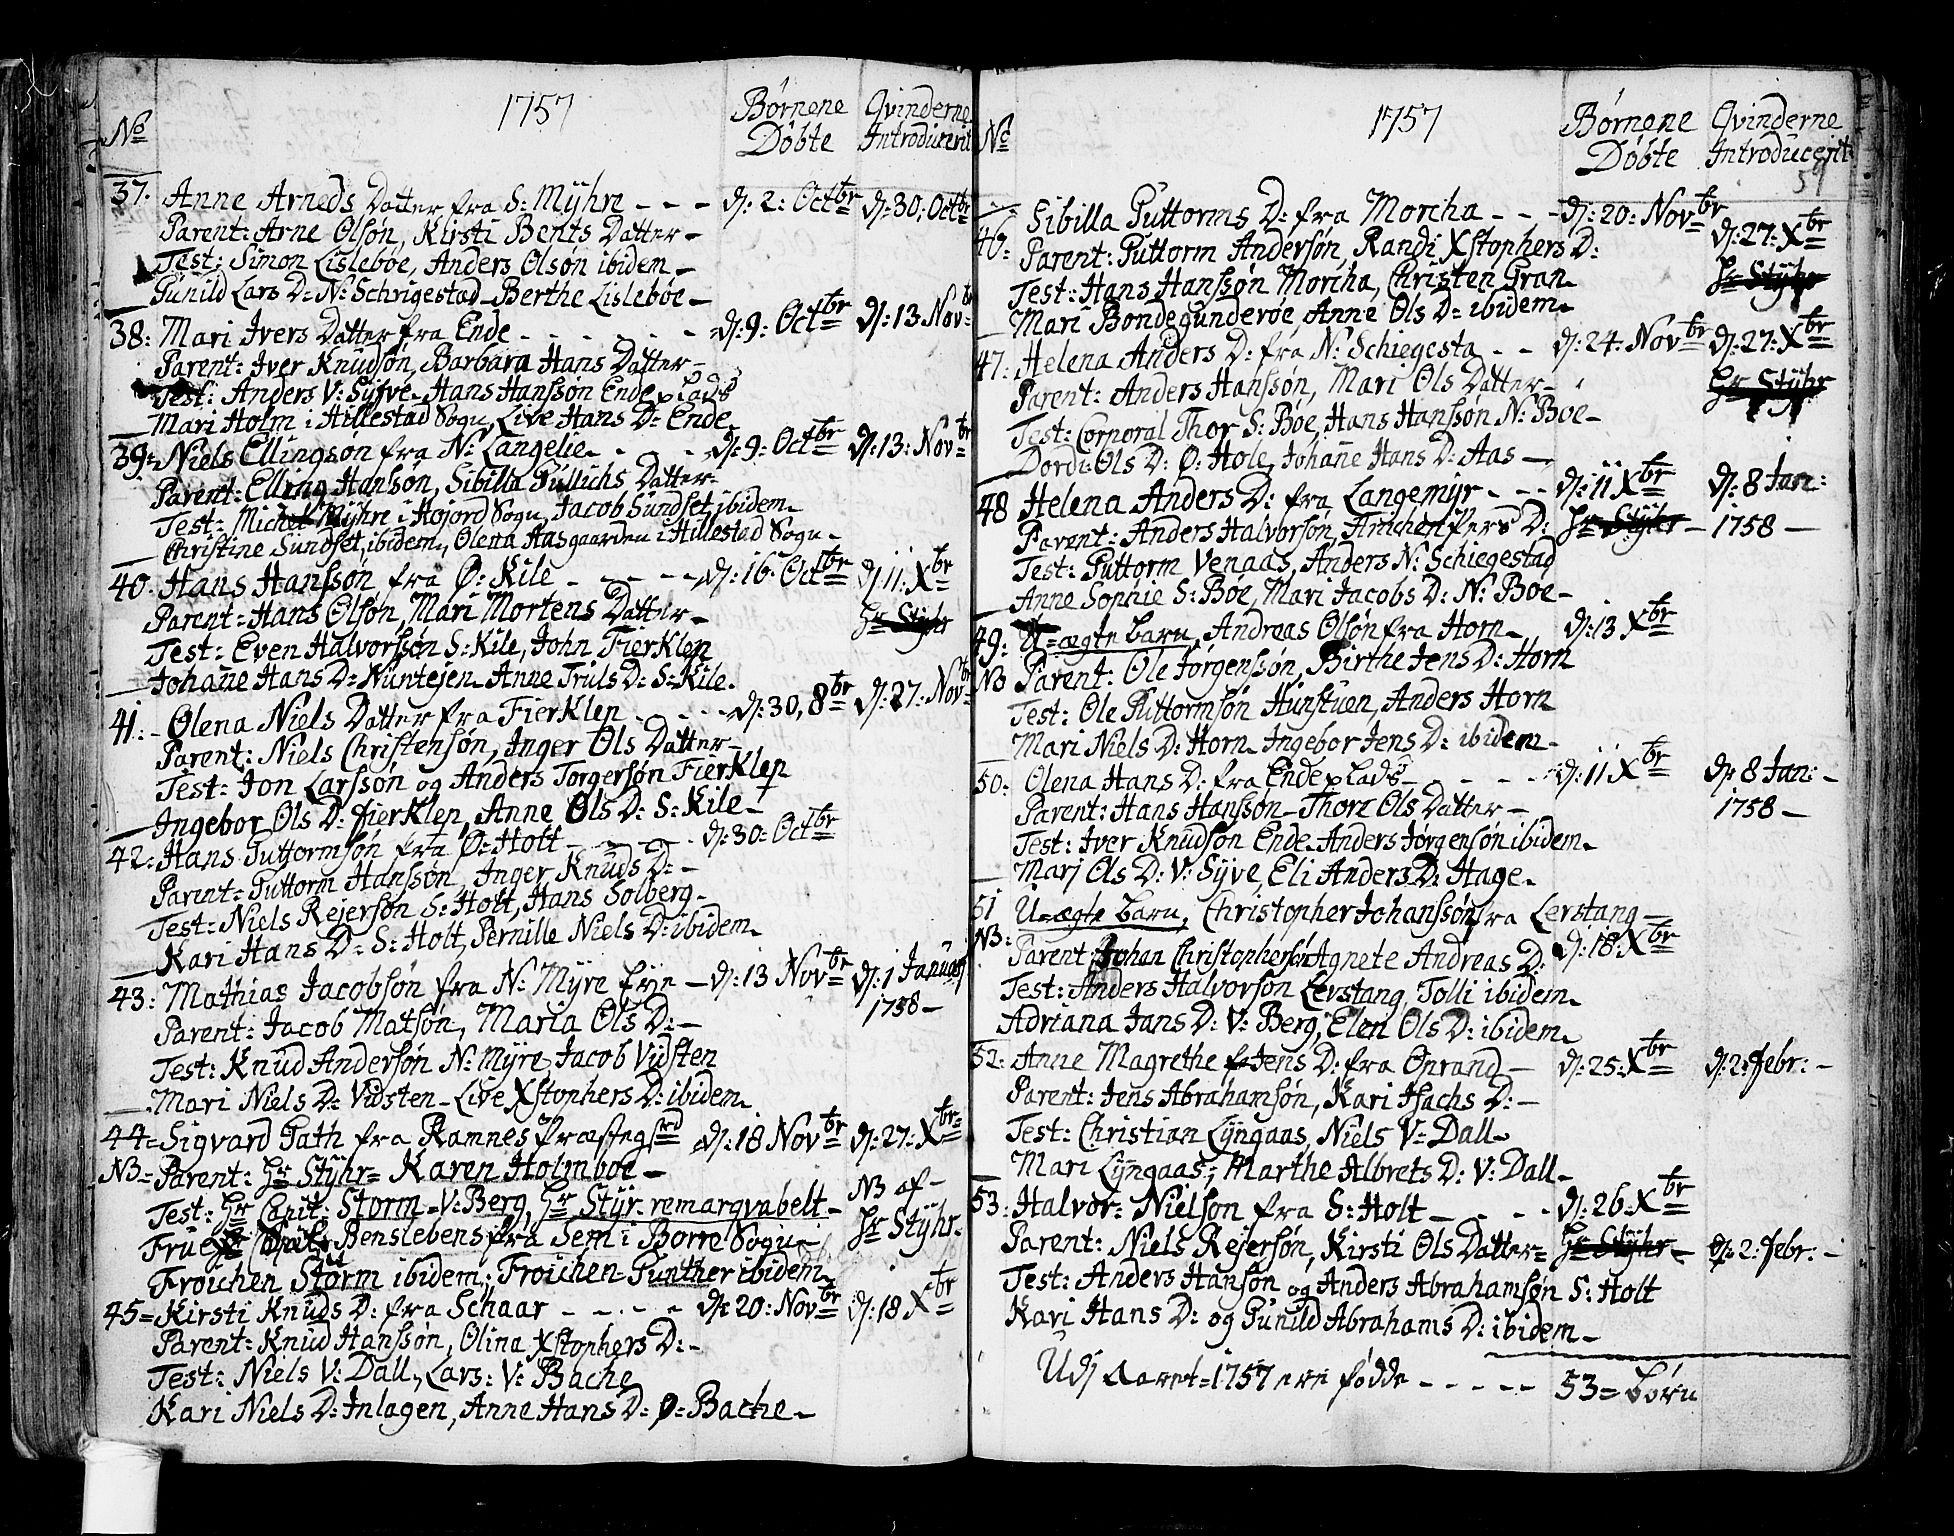 1757
Børnene Døbte
Qvinderne Introducerit
No
37. Anne Arneds Datter fra S: Mÿhre - - - dj: 2: Octbr dj: 30: Octbr
Parent: Arne Olsøn, Kirsti Bents Datter -
Test: Simon Lislebøe, Anders Olsøn ibidem -
Gunild Lars D: N: Schrigestad - Berthe Lislebøe -
38: Mari Ivers Datter fra Ende - - - - dj: 9: Octbr dj: 13 Novbr
Parent: Iver Knudsøn, Barbara Hans Datter -
Test: Anders V: Syfve - Hans Hansson Ende plads
Mari Holm i Hillestad Sogn, Live Hans D: Ende
39: Niels Ellingsøn fra N: Langelie - - - dj: 9: Octbr dj: 13: Novbr
Parent: Elling Hansøn, Sibilla Gullichs Datter -
Test: Michel Mÿhre i Hojord Sogn, Jacob Sundset ibidem -
Christine Sundset, ibidem, Olena Aasgaarden i Hillestad Sogn -
40: Hans Hanssøn fra Ø: Kile - - - - dj: 16: Octbr dj 11: Xbr
Parent: Hans Olsøn, Mari Mortens Datter - Hr Stÿhr
Test: Even Halvorssøn S: Kile, John Fierklep
Johanne Hans D: Nuntejen - Anne Truls D: S: Kile.
41: - Olena Niels Datter fra Fierklep - - - - dj: 30, 8br dj: 27: Novbr
Parent: Niels Christensøn, Inger Ols Datter -
Test: Jon Larssøn og Anders Torgersøn Fierklep
Ingebor Ols D: Fierklep, Anne Ols D: S: Kile -
42: Hans Guttormsøn fra Ø: Holt - - - dj: 30: Octbr
Parent: Guttorm Hanssøn, Inger Knuds D: -
Test: Niels Rejersøn S: Holt, Hans Solberg -
Kari Hans D: S: Holt, Pernille Niels D: ibidem -
43: Mathias Jacobsøn fra N: Myre Eye - dj: 13 Novbr dj: 1 Januarj
1758 -
Parent: Jacob Matsøn, Maria Ols D: -
Test: Knud Andersøn N: Myre, Jacob Vidsten
Mari Niels D: Vidsten - Live Xstophers D: ibidem -
44 = Sigvard Gath fra Ramnes Præstegrd dj: 18 Novbr dj: 27: Xbr
NB = Parent: Hr Stÿhr = Karen Holmboe - NB af -
Test: Hr Capit: Storm - V: Berg, Hr Stÿr. remarqvabelt - Hr Stÿhr.
Frue Benslebens fra Sem i Borre Sogn -
Froichen Storm ibidem; Froichen Gunther ibidem
45 = Kirsti Knuds D: fra Schaar - - - - dj: 20: Novbr dj: 18 Xbr
Parent: Knud Hanssøn, Olina Xstophers D: -
Test: Niels V: Dall, Lars: V: Bache
Kari Niels D: Inlagen, Anne Hans D: Ø: Bache -
1757
Børnene Døbte
Qvinderne Introducerit
59
No
46: Sibilla Guttorms D: fra Morcha - - - dj: 20: Novbr dj: 27: Xbr
Parent: Guttorm Andersøn, Randi Xstophers D:
Test: Hans Hanssøn Morcha, Christen Gran - Hr Stÿhr
Mari Bondegunderøe, Anne Ols D: ibidem -
47: Helena Anders D: fra N: Schiegesta - - dj: 24: Novbr dj: 27: Xbr
Parent: Anders Hanssøn, Mari Ols Datter - Hr Stÿhr
Test: Corporal Thor S: Bøe, Hans Hanssøn N: Boe -
Dordi Ols D: Ø: Hole, Johanne Hans D: Aas -
48 Helena Anders D: fra Langemyr - - - dj: 11 Xbr dj: 8 Jan:
Parent: Anders Halvorsøn, Anichen Pers D: Hr Stÿhr - 1758 -
Test: Guttorm Venaas, Anders N: Schiegestad
Anne Sophie S: Bøe, Mari Jacobs D: N: Boe -
49: U=ægte barn, Andreas Olsøn fra Horn - dj: 13 Xbr
NB Parent: Ole Jørgenssøn, Birthe Jens D: Horn
Test: Ole Guttormsøn Hunstuen, Anders Horn
Mari Niels D: Horn - Ingebor Jens D: ibidem -
50: Olena Hans D: fra Ende plads - - - - dj: 11 Xbr dj: 8 Jan: -
Parent: Hans Hanssøn - Thore Ols Datter - 1758 -
Test: Iver Knudsøn Ende - Anders Jørgensøn ibidem -
Marj Ols D: V: Syve, Eli Anders D: Hage -
51 U=ægte barn, Christopher Johanssøn fra Lerstang -
NB: dj: 18: Xbr
Parent: Johan Christophersøn Agnete Andreas D:
Test: Anders Halvorsøn Lerstang, Tolli ibidem -
Adriana Jans D: V: Berg, Elen Ols D: ibidem -
52: Anne Magrethe Jens D: fra Onrand - dj: 25: Xbr dj: 2: Febr: -
Parent: Jens Abrahamsøn, Kari Isachs D: -
Test: Christian Lÿngaas, Niels V: Dall -
Mari Lÿngaas; Marthe Albrets D: V: Dall -
53: Halvor: Nielsøn fra S: Holt - - - - dj: 26: Xbr
Parent: Niels Rejersøn, Kirsti Ols Datter = Hr Stÿhr - dj: 2: Febr: -
Test: Anders Hansøn og Anders Abrahamsøn S: Holt
Kari Hans D: og Gunild Abrahams D: ibidem -
Udj Aaret = 1757 ere fødde - - - - - 53 = børn